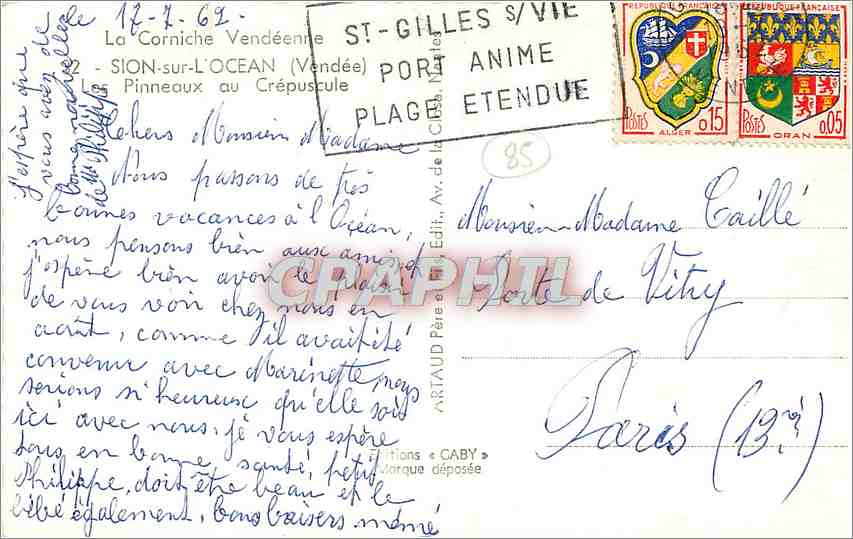 le 17-7-62-
La Corniche Vendéenne
2 - SION-sur-L'OCEAN (Vendée)
Les Pinneaux au Crépuscule
Chers Monsieur Madame
Nous passons de très
bonnes vacances à l'Océan,
nous pensons bien aux amis et
j'espère bien avoir le plaisir
de vous voir chez nous en
août, comme il avait été
convenue avec Marinette, nous
serions si heureux qu'elle sois
ici avec nous, je vous espère
tous en bonne santé, petit
Philippe, doit être beau et le
bébé également, bons baisers mémé
j'espère que
vous avez de
bonne nouvelles
de Philippe
ST-GILLES S/VIE
PORT ANIME
PLAGE ETENDUE
REPUBLIQUE FRANÇAISE
POSTES
0,15
ALGER
REPUBLIQUE FRANÇAISE
POSTES
0,05
ORAN
85
ARTAUD Père et Fils, Edit., Av. de la Close, Nantes
Editions « GABY »
Marque déposée
CPAPHIL
Monsieur-Madame Caillé
Porte de Vitry
Paris (13è)